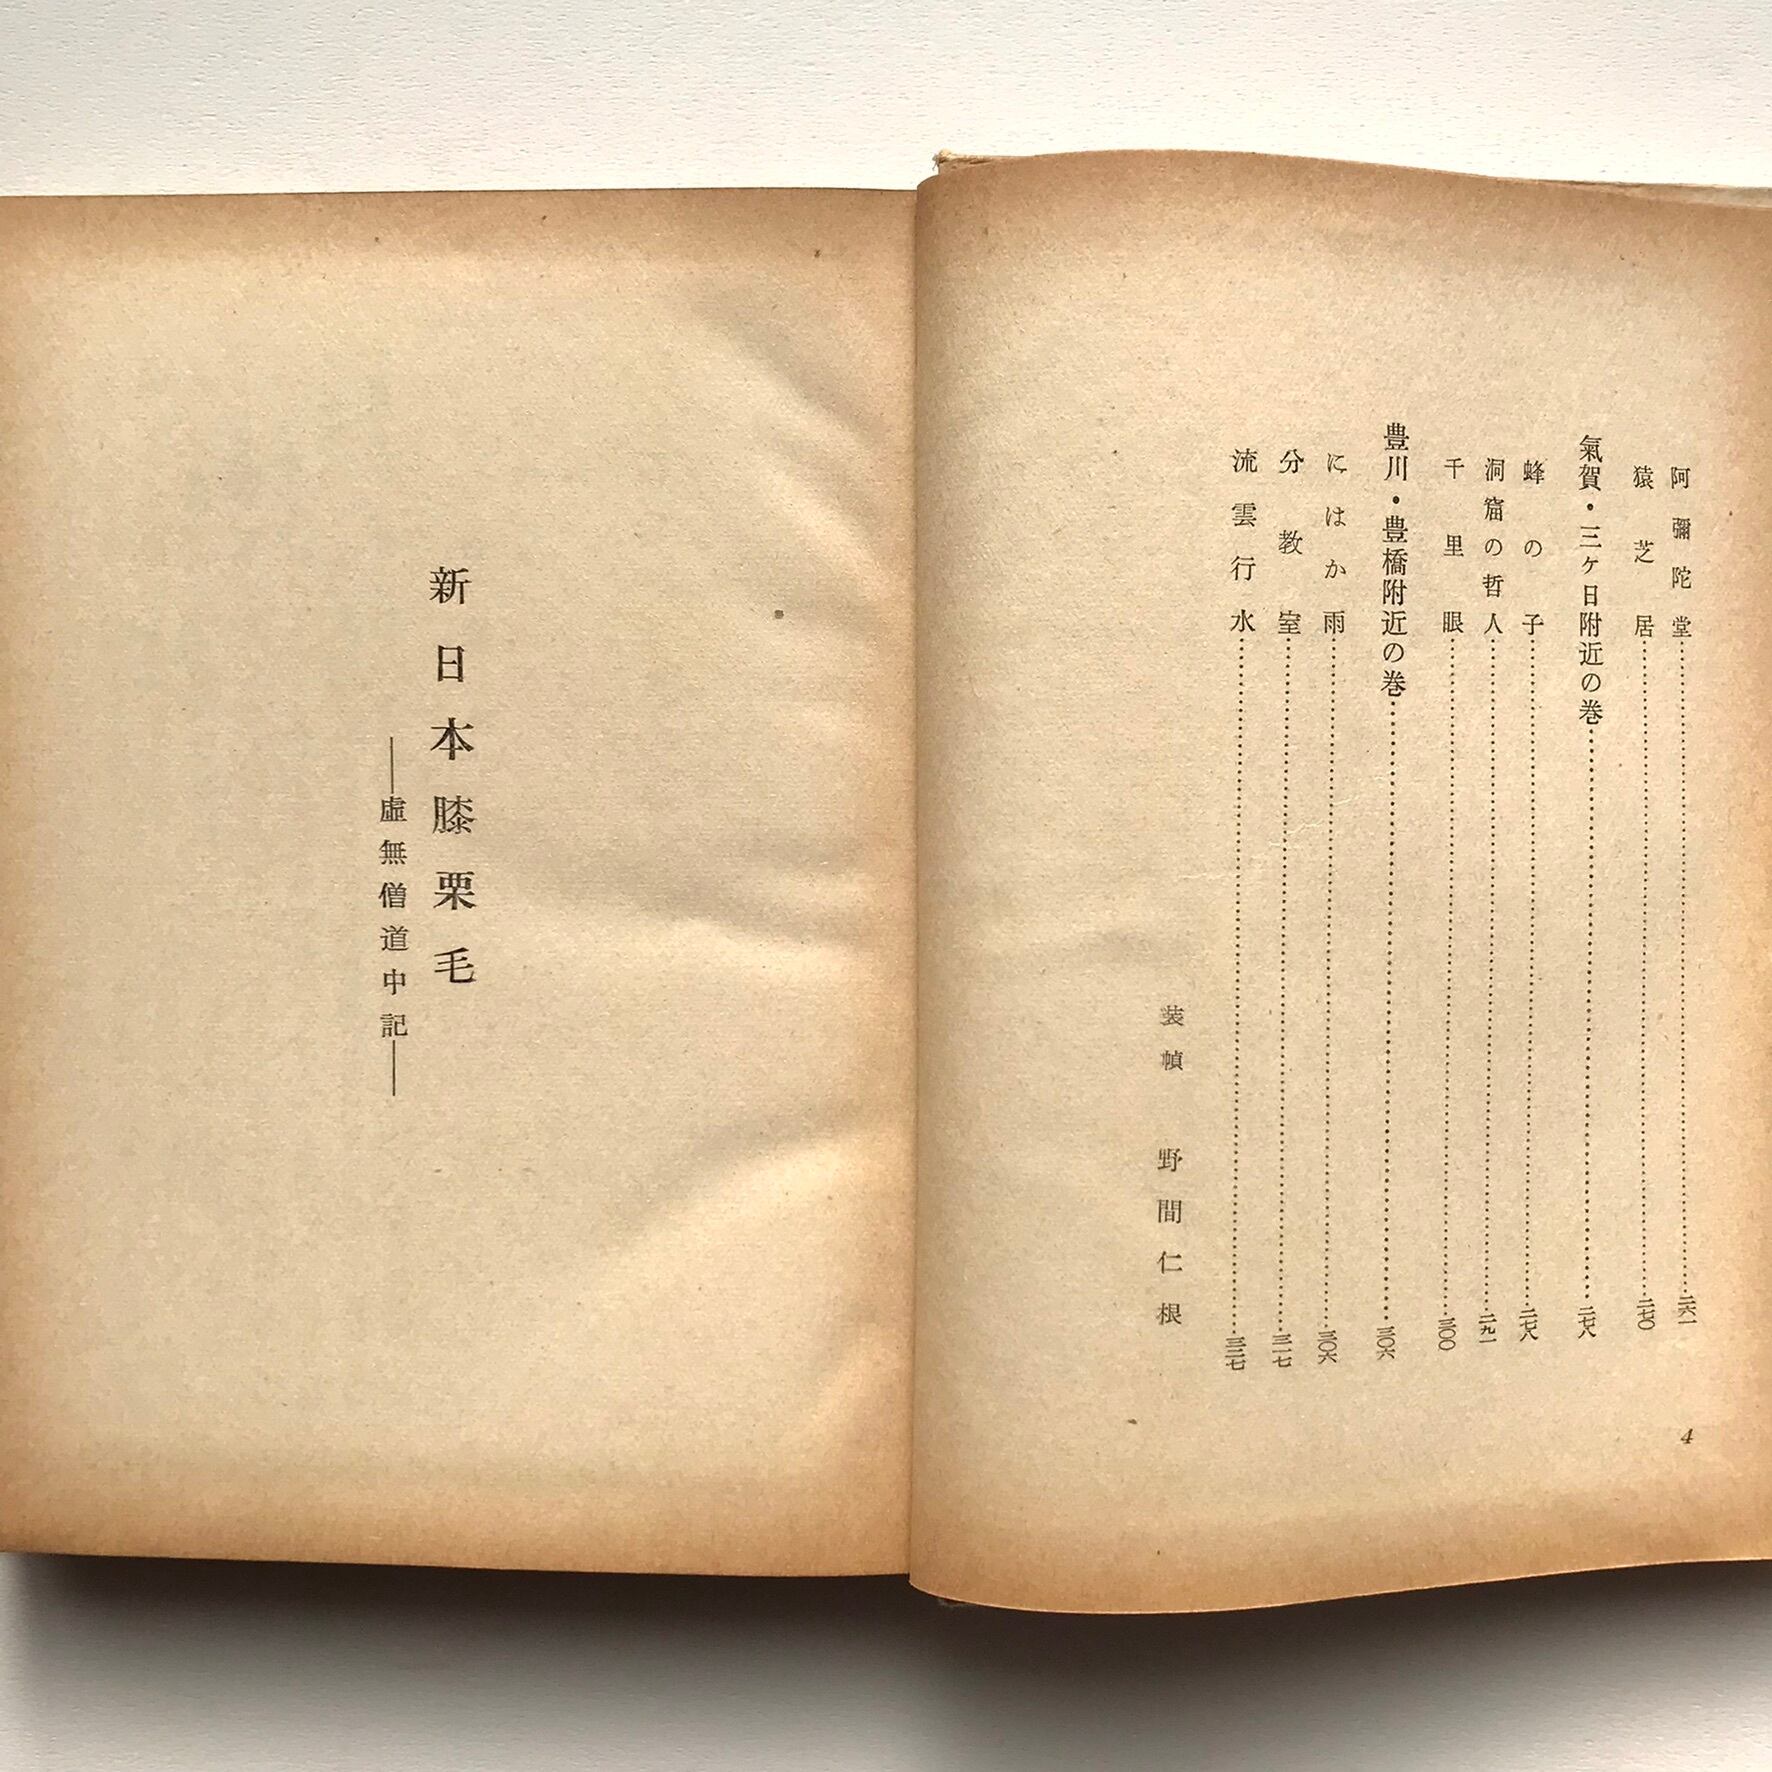 阿彌陀堂……二六一
猿芝居……二七〇
氣賀・三ヶ日附近の巻……二七八
蜂の子……二七八
洞窟の哲人……二九一
千里眼……三〇〇
豊川・豊橋附近の巻……三〇六
にはか雨……三〇六
分教室……三一七
流雲行水……三二七
装幀 野間仁根
4
新日本膝栗毛
――虛無僧道中記――